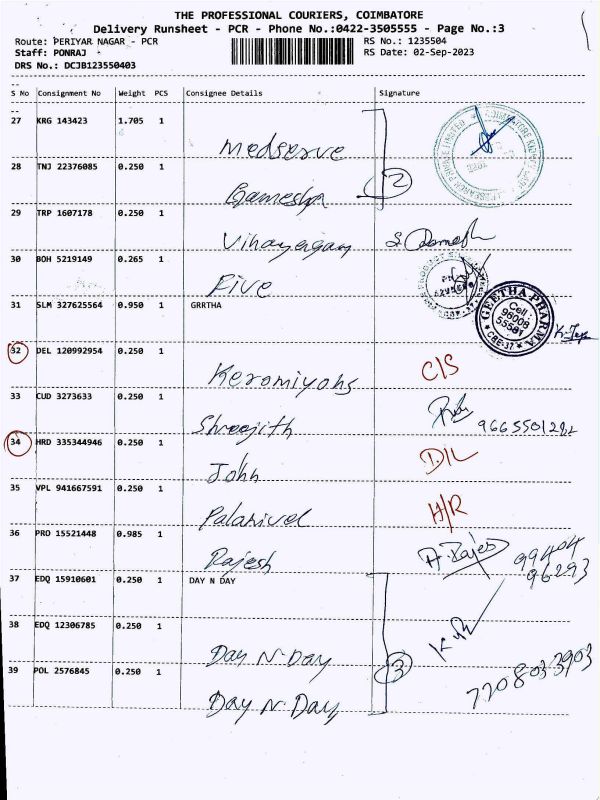 THE PROFESSIONAL COURIERS, COIMBATORE
Delivery Runsheet - PCR - Phone No.:0422-3505555 - Page No.:3
Route: PERIYAR NAGAR - PCR RS No.: 1235504
Staff: PONRAJ RS Date: 02-Sep-2023
DRS No.: DCJB123550403
S No Consignment No Weight PCS Consignee Details Signature
27 KRG 143423 1.705 1
Medserve
28 TNJ 22376085 0.250 1
2
Gamesha
29 TRP 1607178 0.250 1
Vinayagam
30 BOH 5219149 0.265 1
Five
31 SLM 327625564 0.950 1 GRRTHA
GEETHA PHARMA
Cell : 98008 55581
CBE-37
32 DEL 120992954 0.250 1
Keromiyohs C/S
33 CUD 3273633 0.250 1
Shreejith
34 HRD 335344946 0.250 1
John D/L
35 VPL 941667591 0.250 1
Palanivel H/R
36 PRO 15521448 0.985 1
Rajesh A. Rajes 99404 96293
37 EDQ 15910601 0.250 1 DAY N DAY
38 EDQ 12306785 0.250 1
Day N Day 3
39 POL 2576845 0.250 1
7708033903
Day N Day